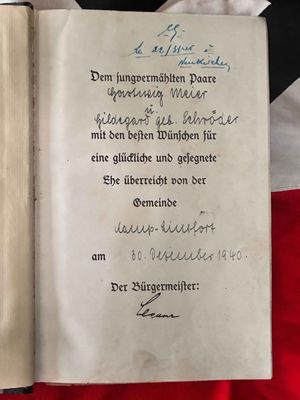 Dem jungvermählten Paare
Meier
u.
Hildegard geb. Schröder
mit den besten Wünschen für
eine glückliche und gesegnete
Ehe überreicht von der
Gemeinde
Kamp-Lintfort
am 30. Dezember 1940.
Der Bürgermeister: